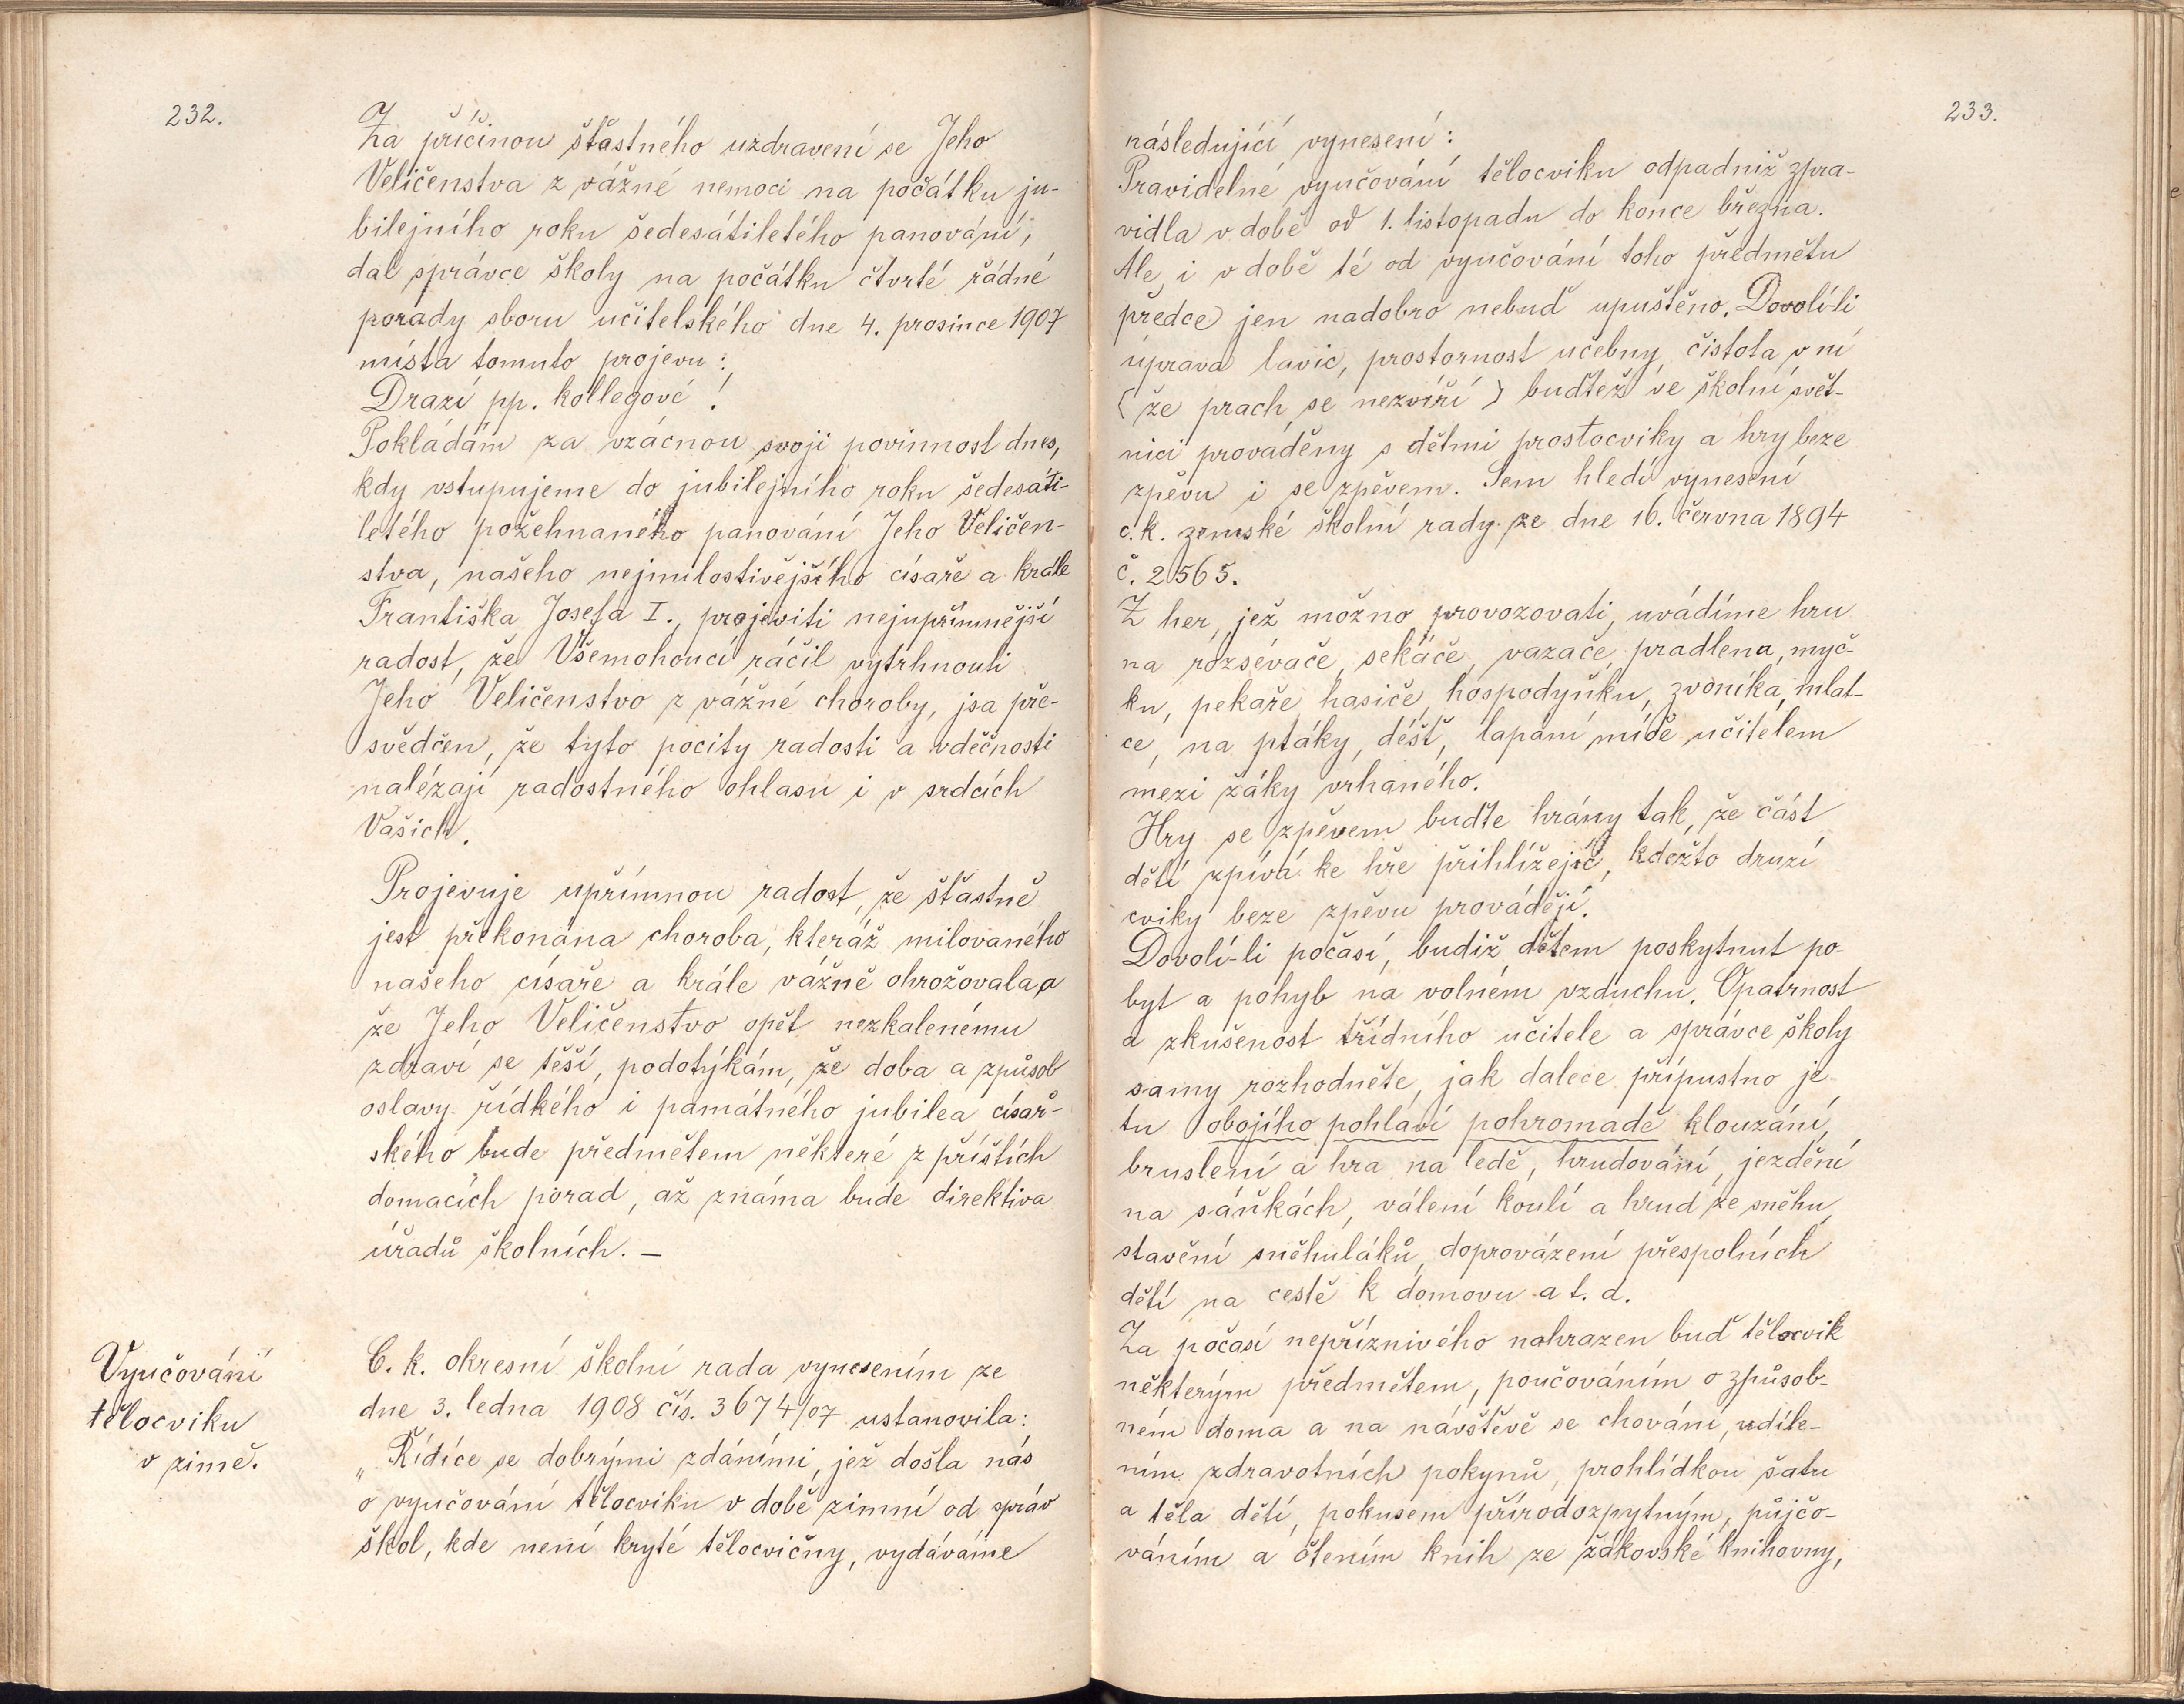 232.
Za příčinou šťastného uzdravení se Jeho
Veličenstva z vážné nemoci na počátku ju-
bilejního roku šedesátiletého panování,
dal správce školy na počátku čtvrté řádné
porady sboru učitelského dne 4. prosince 1907
místa tomuto projevu:
Drazí pp. kollegové!
Pokládám za vzácnou svoji povinnost dnes,
kdy vstupujeme do jubilejního roku šedesáti-
letého požehnaného panování Jeho Veličen-
stva, našeho nejmilostivějšího císaře a krále
Františka Josefa I., projeviti nejupřímnější
radost, že Všemohoucí ráčil vytrhnouti
Jeho Veličenstvo z vážné choroby, jsa pře-
svědčen, že tyto pocity radosti a vděčnosti
nalézají radostného ohlasu i v srdcích
Vašich.
Projevuje upřímnou radost, že šťastně
jest překonána choroba, kteráž milovaného
našeho císaře a krále vážně ohrožovala, a
že Jeho Veličenstvo opět nezkalenému
zdraví se těší, podotýkám, že doba a způsob
oslavy řídkého i památného jubilea císař-
ského bude předmětem některé z příštích
domacích porad, až známa bude direktiva
úřadů školních. –
Vyučování
tělocviku
v zimě.
C. k. okresní školní rada vynesením ze
dne 3. ledna 1908 čís. 3674/07 ustanovila:
„Řídíce se dobrými zdáními, jež došla nás
o vyučování tělocviku v době zimní od správ
škol, kde není kryté tělocvičny, vydáváme
233.
následující vynesení:
Pravidelné vyučování tělocviku odpadniž zpra-
vidla v době od 1. listopadu do konce března.
Ale, i v době té od vyučování toho předmětu
předce jen nadobro nebuď upuštěno. Dovolí-li
úprava lavic, prostornost učebny, čistota v ní
(že prach se nezvíří) buďtež ve školní svět-
nici prováděny s dětmi prostocviky a hry beze
zpěvu i se zpěvem. Sem hledí vynesení
c. k. zemské školní rady ze dne 16. června 1894
č. 2565.
Z her, jež možno provozovati, uvádíme hru
na rozsévače, sekáče, vazače, pradlena, myč-
ku, pekaře hasiče, hospodyňku, zvoníka, mlat-
ce, na ptáky, déšť, lapání míče učitelem
mezi žáky vrhaného.
Hry se zpěvem buďte hrány tak, že část
dětí zpívá ke hře přihlížejíc, kdežto druzí
cviky beze zpěvu provádějí.
Dovolí-li počasí, budiž dětem poskytnut po-
byt a pohyb na volném vzduchu. Opatrnost
a zkušenost třídního učitele a správce školy
samy rozhodněte, jak dalece přípustno je
tu obojího pohlaví pohromadě klouzání,
bruslení a hra na ledě, hrudování, jezdění
na sáňkách, válení koulí a hrud ze sněhu,
stavění sněhuláků, doprovázení přespolních
dětí na cestě k domovu a t. d.
Za počasí nepříznivého nahrazen buď tělocvik
některým předmětem, poučováním o způsob-
ném doma a na návštěvě se chování, udíle-
ním zdravotních pokynů, prohlídkou šatu
a těla dětí, pokusem přírodozpytným, půjčo-
váním a čtením knih ze žákovské knihovny,